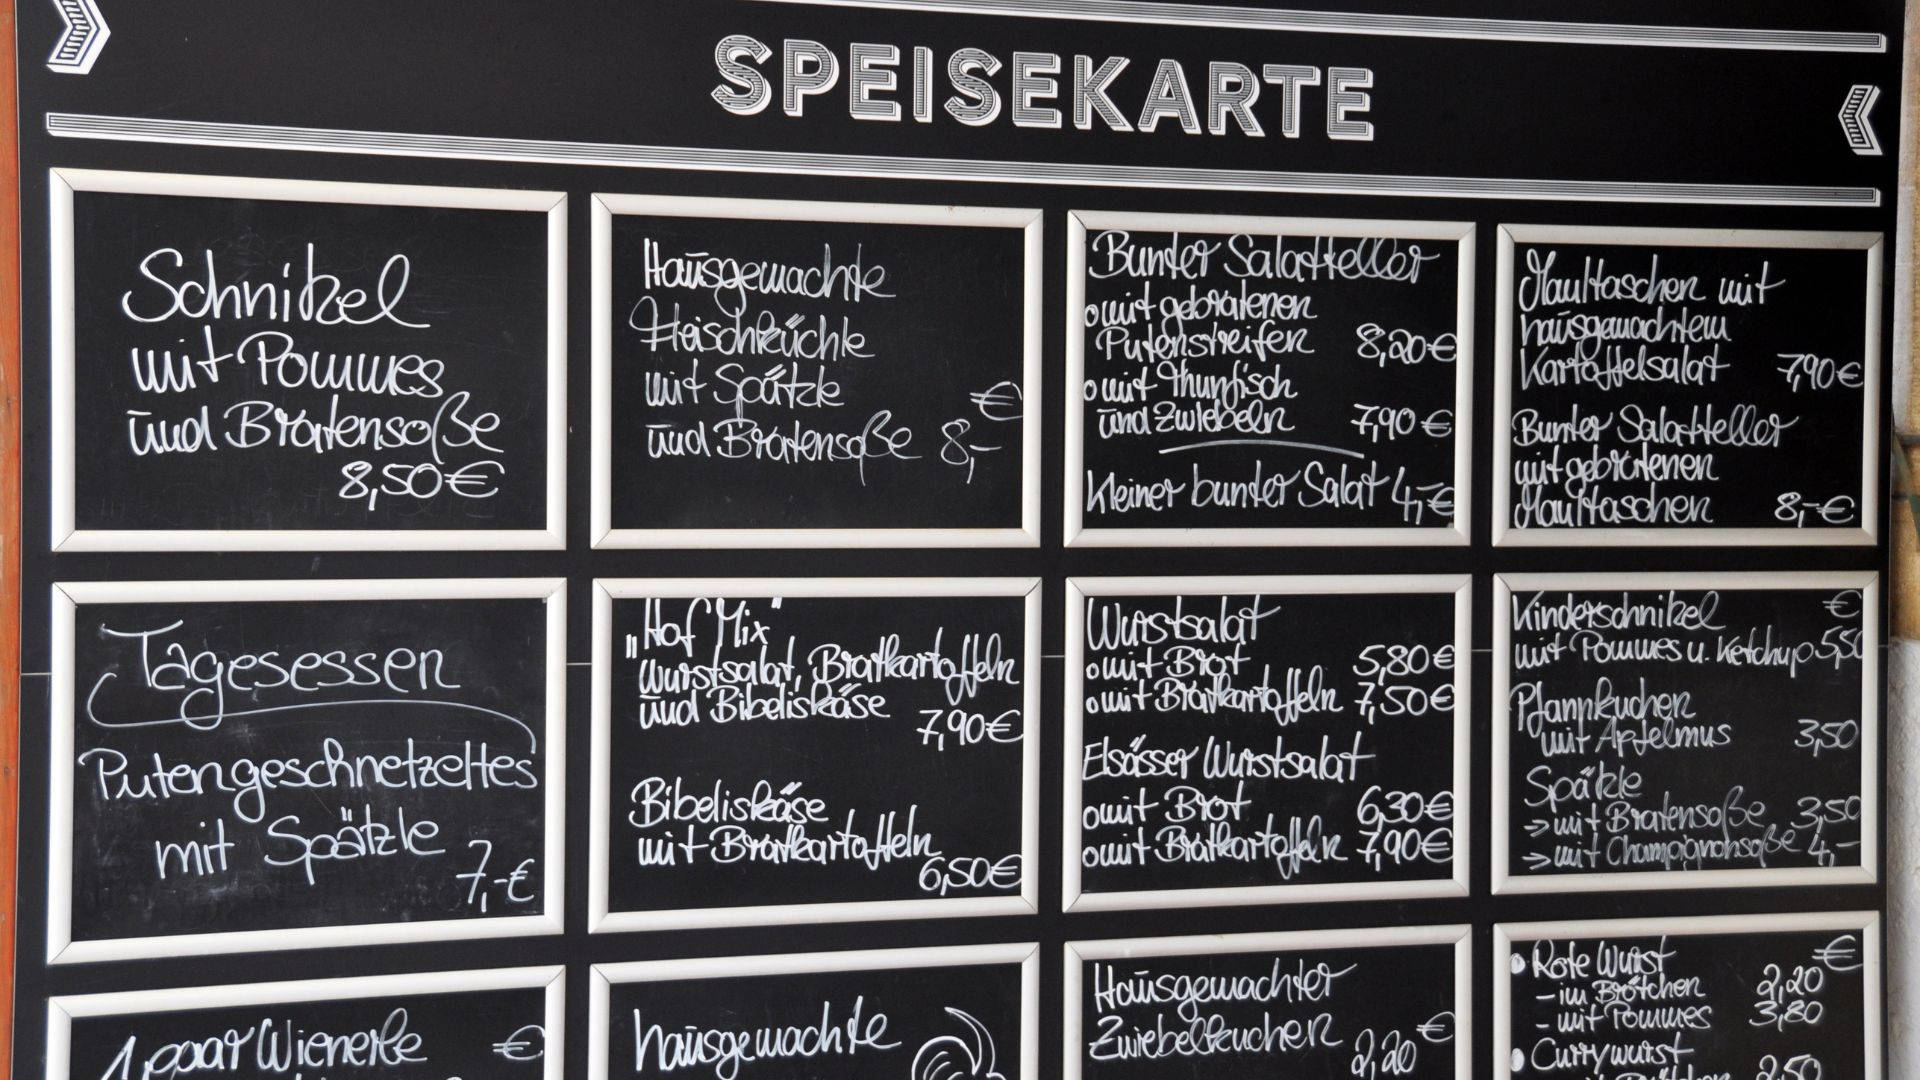 SPEISEKARTE
Schnitzel
mit Pommes
und Bratensoße
8,50€
Hausgemachte
Fleischküchle
mit Spätzle
€
und Bratensoße 8,-
Bunter Salatteller
o mit gebratenen
Putenstreifen 8,20€
o mit Thunfisch
und Zwiebeln 7,90€
Kleiner bunter Salat 4,-€
Maultaschen mit
hausgemachtem
Kartoffelsalat 7,90€
Bunter Salatteller
mit gebratenen
Maultaschen 8,-€
Tagesessen
Putengeschnetzeltes
mit Spätzle
7,-€
„Hof Mix"
Wurstsalat, Bratkartoffeln
und Bibeliskäse
7,90€
Bibeliskäse
mit Bratkartoffeln
6,50€
Wurstsalat
o mit Brot 5,80€
o mit Bratkartoffeln 7,50€
Elsässer Wurstsalat
o mit Brot 6,30€
o mit Bratkartoffeln 7,90€
Kinderschnitzel €
mit Pommes u. Ketchup 5,50
Pfannkuchen
mit Apfelmus 3,50
Spätzle
→ mit Bratensoße 3,50
→ mit Champignonsoße 4,-
1 paar Wienerle €
hausgemachte
Hausgemachter
Zwiebelkuchen €
2,20
• Rote Wurst €
- im Brötchen 2,20
- mit Pommes 3,80
• Currywurst
2,50